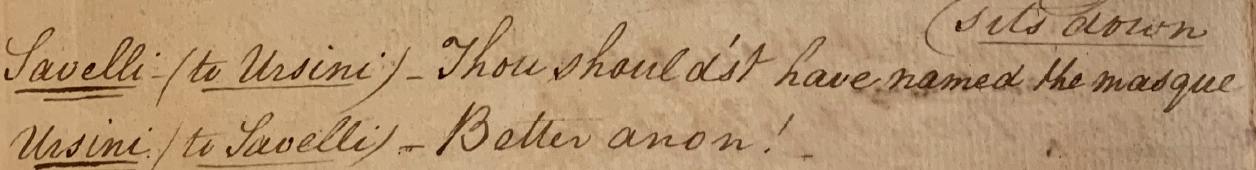 (sits down
Savelli - (to Ursini) - Thou should'st have named the masque
Ursini. (to Savelli) - Better anon! -